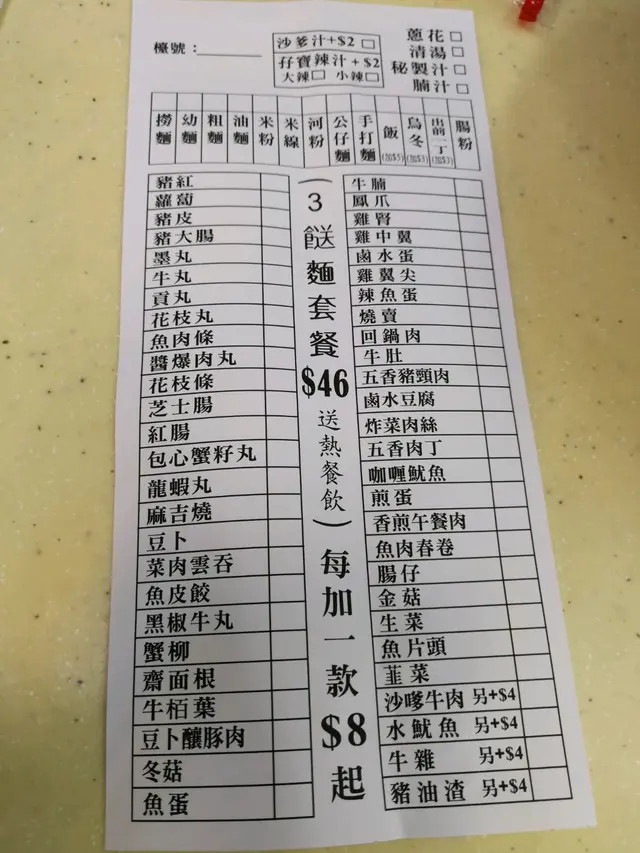 檯號：
沙爹汁+$2
孖寶辣汁+$2
大辣 小辣
蔥花
清湯
秘製汁
腩汁
撈麵
幼麵
粗麵
油麵
米粉
米線
河粉
公仔麵
手打麵
飯(加$5)
烏冬(加$3)
出前一丁(加$3)
腸粉
豬紅
蘿蔔
豬皮
豬大腸
墨丸
牛丸
貢丸
花枝丸
魚肉條
醬爆肉丸
花枝條
芝士腸
紅腸
包心蟹籽丸
龍蝦丸
麻吉燒
豆卜
菜肉雲吞
魚皮餃
黑椒牛丸
蟹柳
齋面根
牛栢葉
豆卜釀豚肉
冬菇
魚蛋
(3餸麵套餐$46送熱餐飲)每加一款$8起
牛腩
鳳爪
雞腎
雞中翼
鹵水蛋
雞翼尖
辣魚蛋
燒賣
回鍋肉
牛肚
五香豬頸肉
鹵水豆腐
炸菜肉絲
五香肉丁
咖喱魷魚
煎蛋
香煎午餐肉
魚肉春卷
腸仔
金菇
生菜
魚片頭
韮菜
沙嗲牛肉 另+$4
水魷魚 另+$4
牛雜 另+$4
豬油渣 另+$4